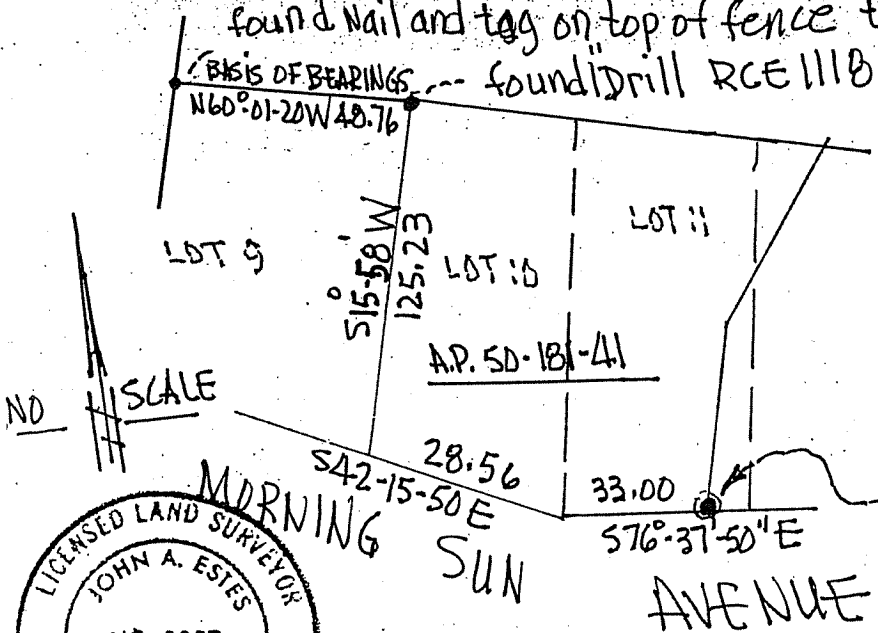 found Nail and tag on top of fence
BASIS OF BEARINGS
found 1" Drill RCE 1118
N60°-01-20W 48.76
LOT 9
S15°-58'W
125.23
LOT 10
LOT 11
A.P. 50-181-41
NO SCALE
28.56
S42-15-50E
33.00
S76°-37'-50"E
MORNING SUN AVENUE
LICENSED LAND SURVEYOR
JOHN A. ESTES